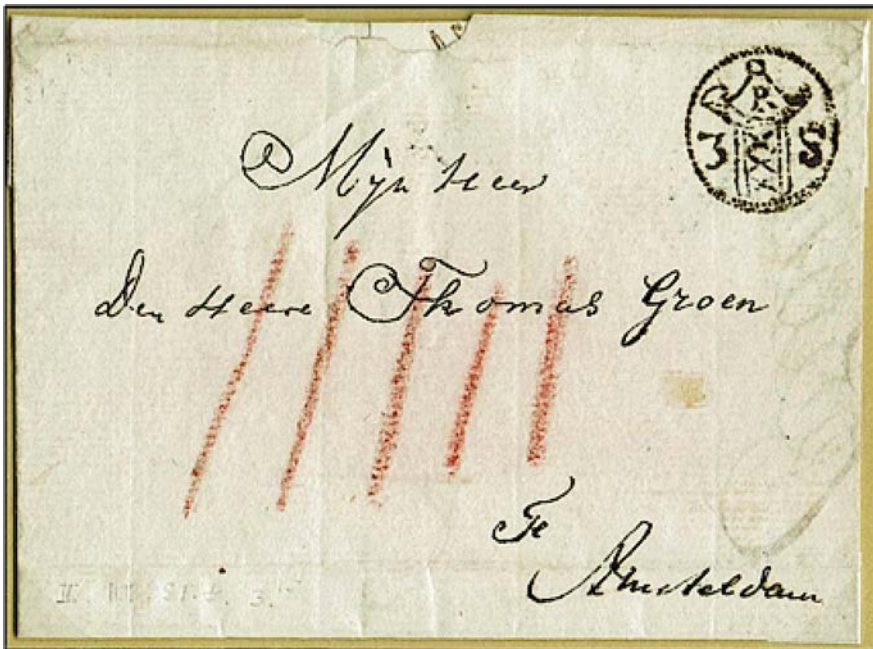 R
3 S
Mijn Heer
Den Heere Thomas Groen
Te
Amsteldam